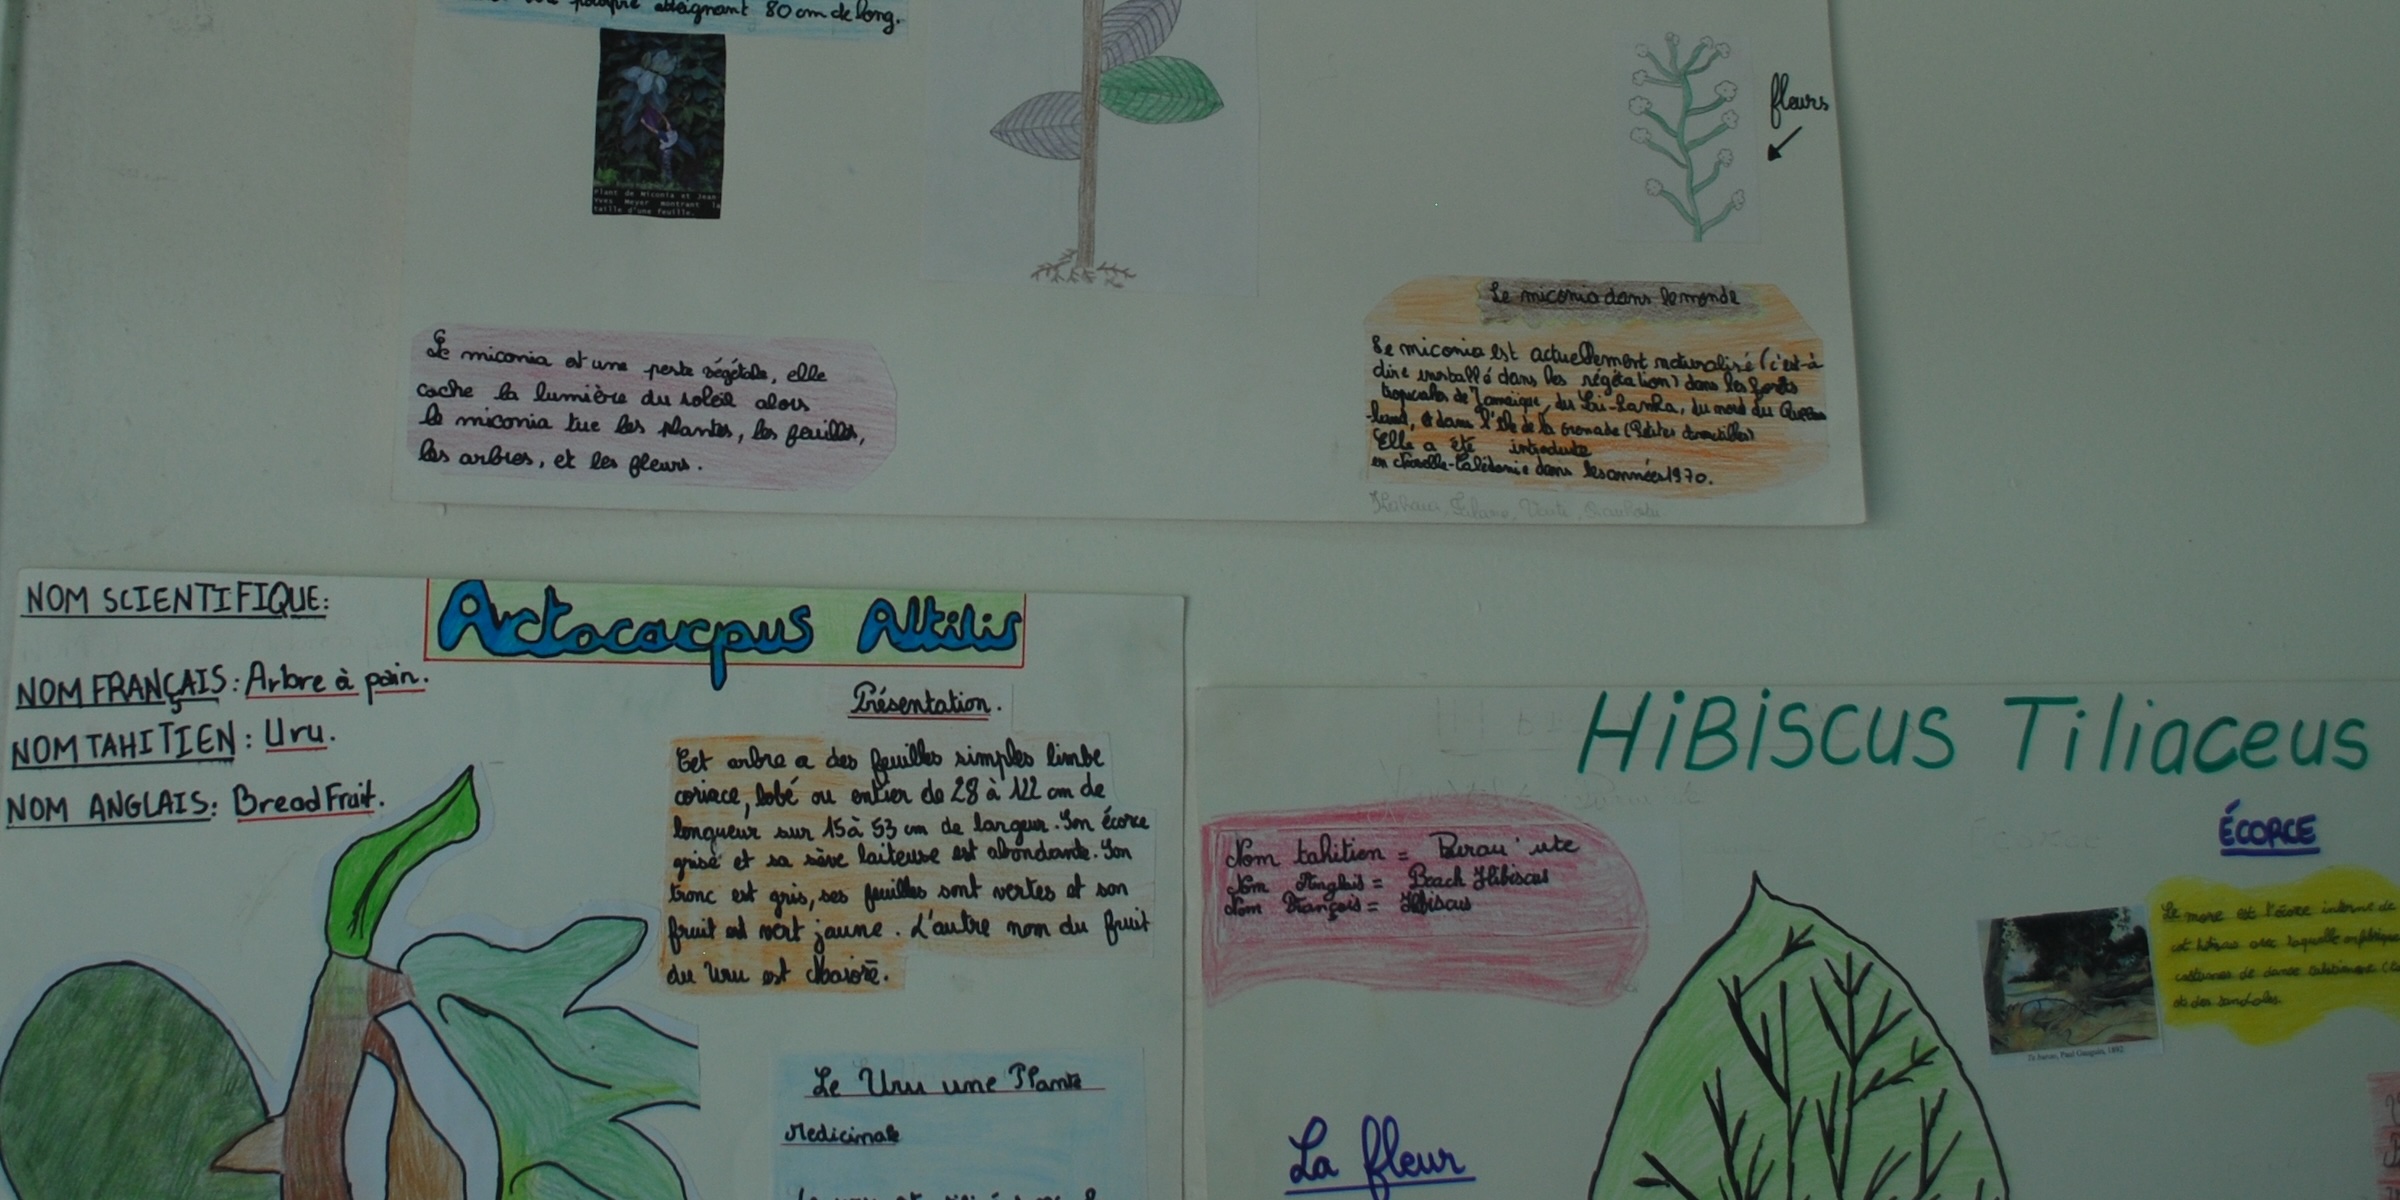 pourpre atteignant 80 cm de long.
Plant de Miconia et Jean
Yves Meyer montrant la
taille d'une feuille.
fleurs
Le miconia est une peste végétale, elle
cache la lumière du soleil alors
le miconia tue les plantes, les feuilles,
les arbres, et les fleurs.
Le miconia dans le monde
Le miconia est actuellement naturalisé (c'est-à
dire installé dans les végétation) dans les forêts
tropicales de Jamaïque, du Sri-Lanka, du nord du Queens
land, et dans l'île de la Grenade (Petites Antilles)
Elle a été introduite
en Nouvelle-Calédonie dans les années 1970.
NOM SCIENTIFIQUE:
Artocarpus Altilis
NOM FRANÇAIS: Arbre à pain.
NOM TAHITIEN: Uru.
NOM ANGLAIS: BreadFruit.
Présentation.
Cet arbre a des feuilles simples limbe
coriace, lobé ou entier de 28 à 122 cm de
longueur sur 15 à 53 cm de largeur. Son écorce
grise et sa sève laiteuse est abondante. Son
tronc est gris, ses feuilles sont vertes et son
fruit est vert jaune. L'autre nom du fruit
du Uru est Maiorē.
Le Uru une Plante
Medicinale
HiBiSCUS Tiliaceus
Nom tahitien = Purau 'ute
Nom Anglais = Beach Hibiscus
Nom Français = Hibiscus
ÉCORCE
Le more est l'écorce interne de
cet hibiscus avec laquelle on fabrique
costumes de danse tahitienne
et des sandales.
Te burao, Paul Gauguin, 1892
La fleur